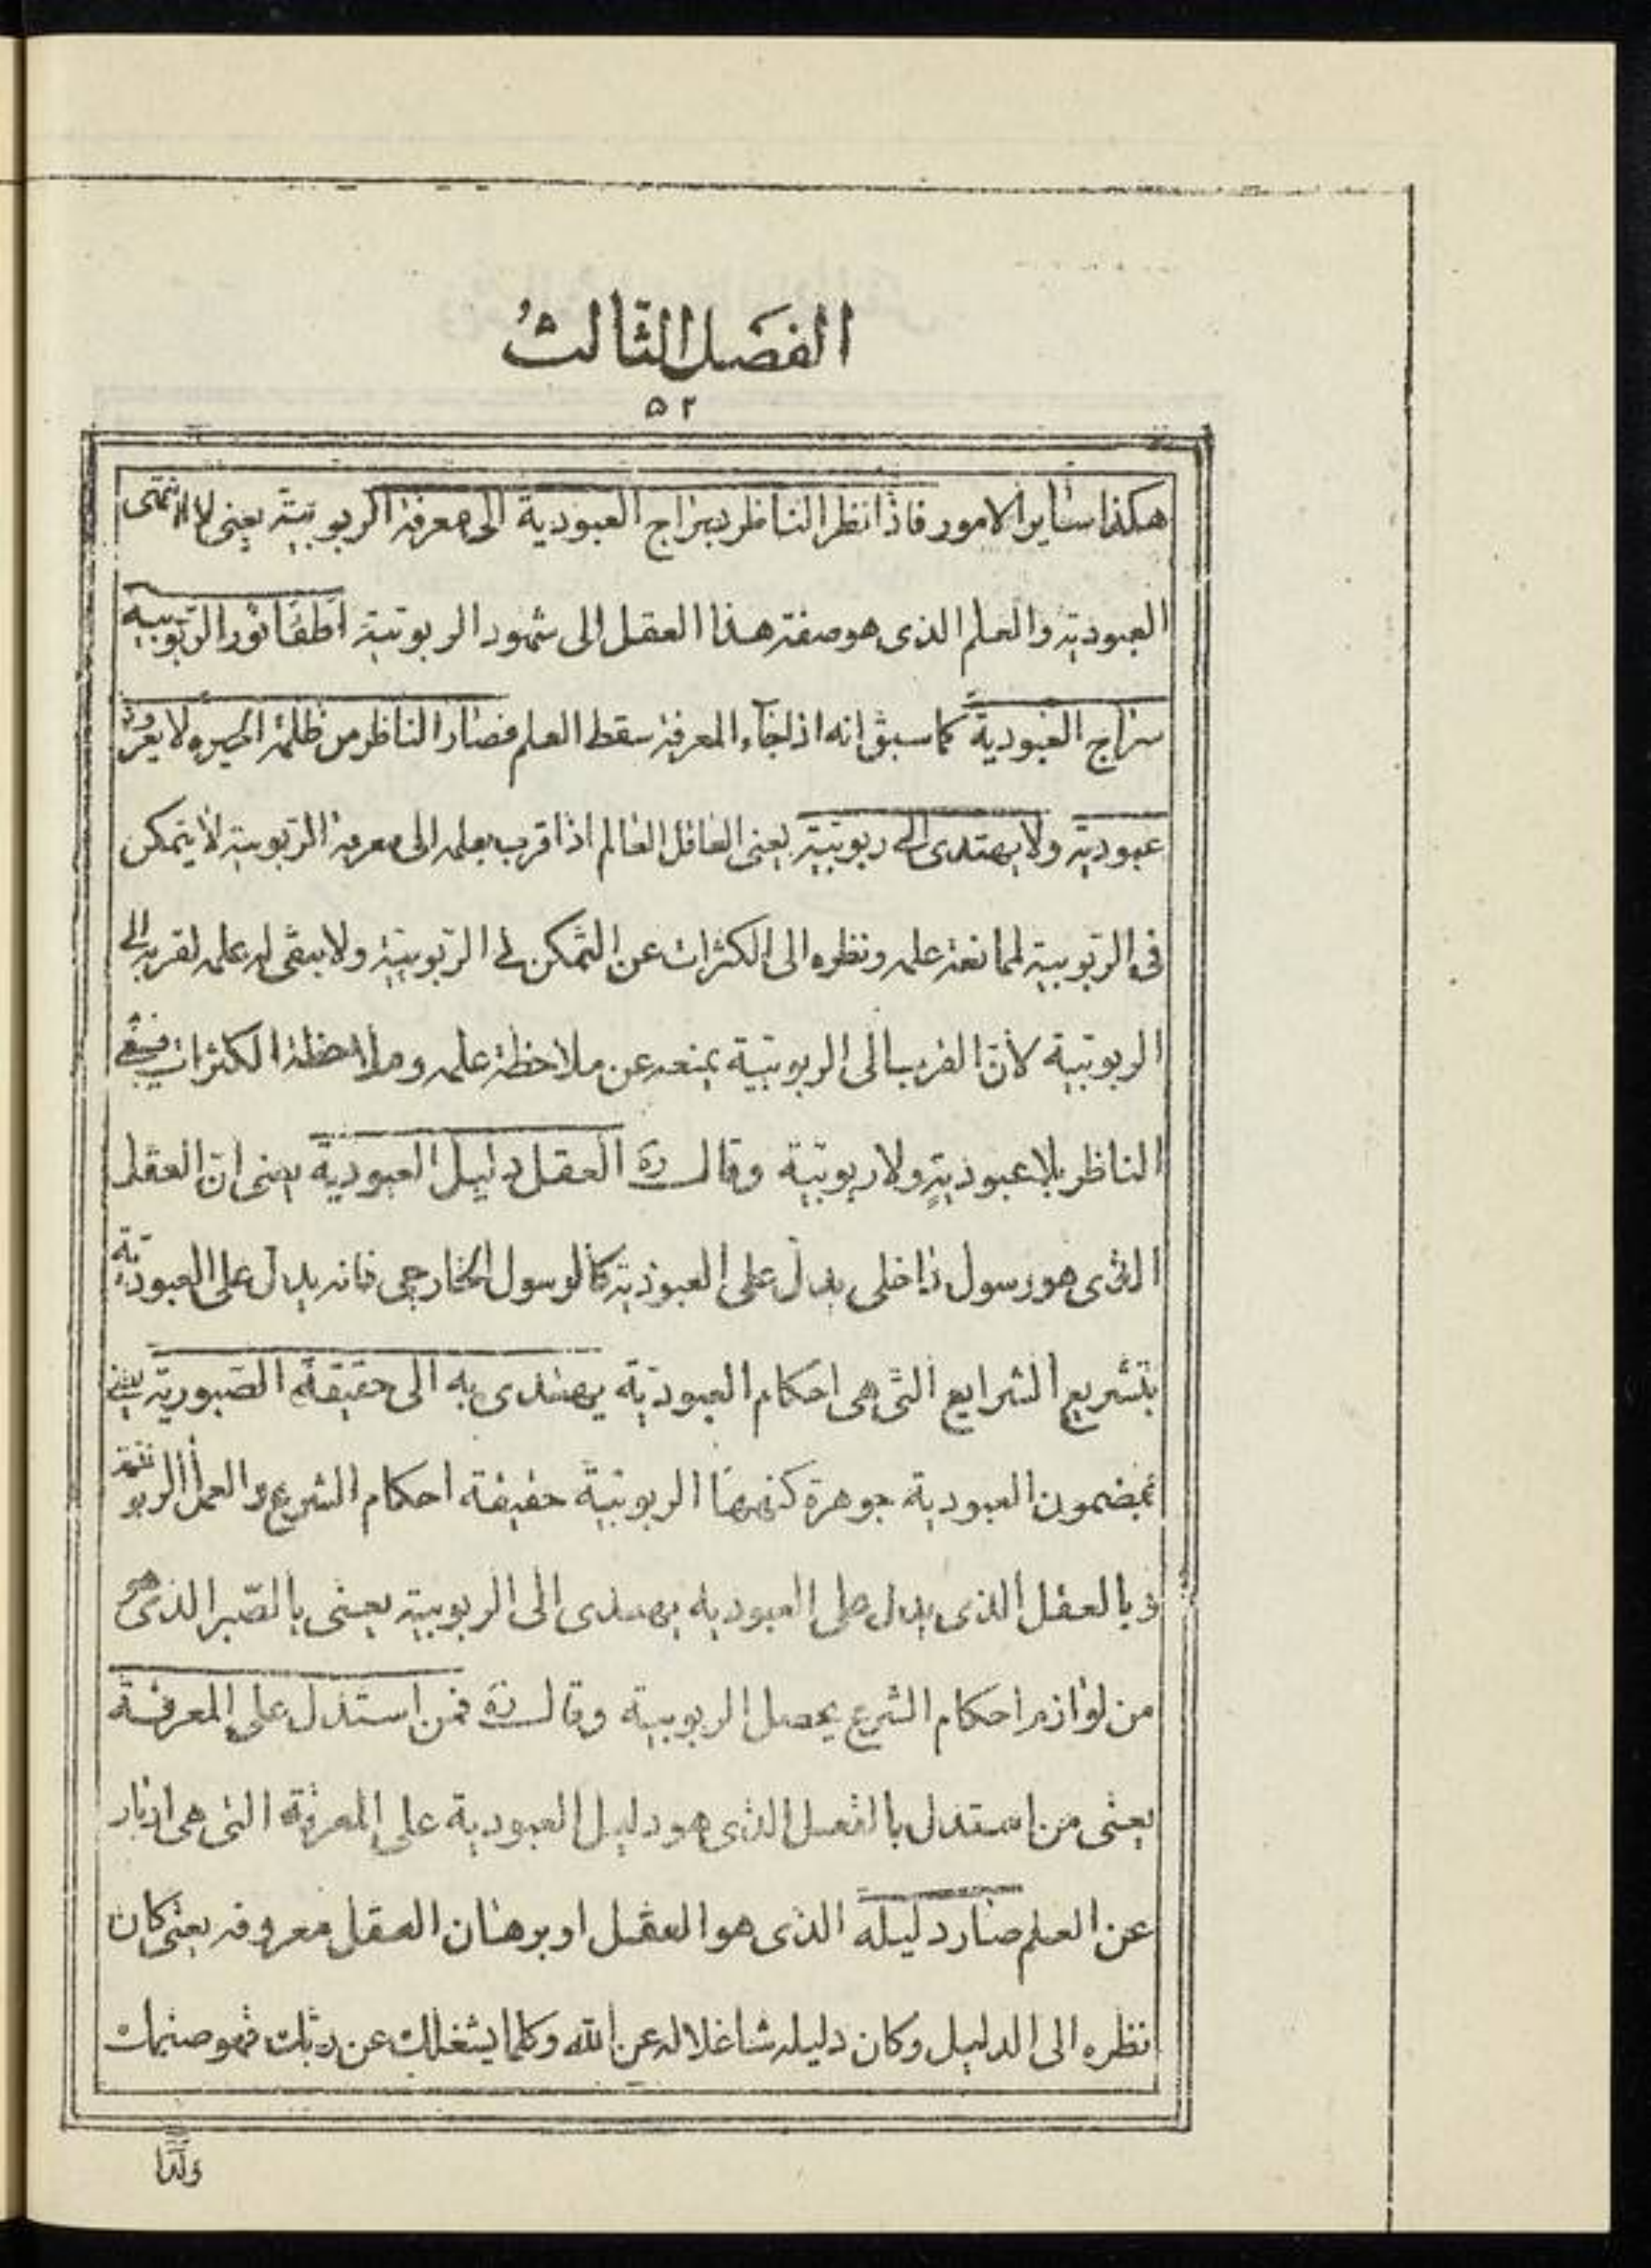 الفصل الثالث
۵۲
هكذا ساير الامور فاذا نظر الناظر بسراج العبودية الى معرفة الربوبيّة يعنى
العبوديّة والعلم الذى هو صفة هذا العقل الى شهود الربوبيّة اطفأ نور الربّوبيه
سراج العبودية كما سبق انه اذا جاء المعرفة سقط العلم فصار الناظر من ظلمة الحيره لا يعرف
عبوديّة ولا يهتدى الى ربوبيّة يعنى العاقل العالم اذا قرب بعلمه الى معرفة الربّوبية لا يتمكن
فى الربّوبية لممانعة علمه ونظره الى الكثرات عن التمكن فى الربّوبيّة ولا يبقى له علمه لقربه الى
الربوبيّة لانّ القرب الى الربوبيّة يمنعه عن ملاحظة علمه وملاحظة الكثرات فيبقى
الناظر بلا عبوديّةٍ ولا ربوبيّة وقال ره العقل دليل العبودية يعنى ان العقل
الذى هو رسول داخلى يدل على العبوديّة كالرسول الخارجى فانه يدل على العبوديّة
بتشريع الشرايع التى هى احكام العبوديّة يهتدى به الى حقيقة الصّبورية يعنى
بمضمون العبودية جوهرة كنهها الربوبيّة حقيقة احكام الشرع والعمل الربوبيّة
وبالعقل الذى يدل على العبوديه يهتدى الى الربوبية يعنى بالصّبر الذى هو
من لوازم احكام الشرع يحصل الربوبية وقال ره فمن استدل على المعرفة
يعنى من استدل بالعقل الذى هو دليل العبودية على المعرفة التى هى ادبار
عن العلم صار دليله الذى هو العقل او برهان العقل معروفه يعنى كان
نظره الى الدليل وكان دليله شاغلا له عن الله وكلما يشغلك عن ربّك فهو صنمك
ولذا